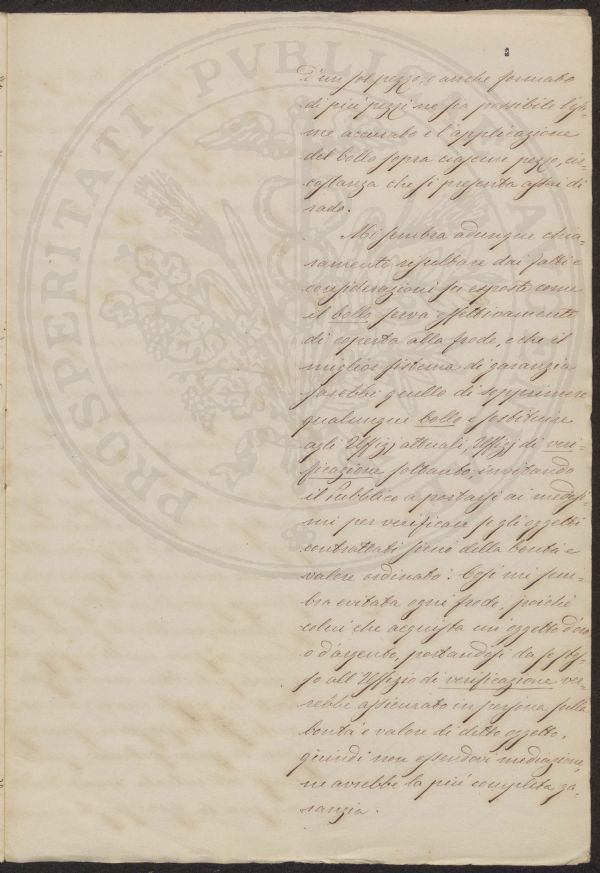 PROSPERITATI PUBLICAE
d'un sol pezzo, e anche formato
di più pezzi ne sia possibile l'esa-
me accurato e l'applicazione
del bollo sopra ciascun pezzo, cir-
costanza che si presenta assai di
rado.
Mi sembra adunque chia-
ramente resultare dai fatti e
considerazioni su esposte come
il bollo serva effettivamente
di coperta alla frode, e che il
miglior sistema di garanzia
sarebbe quello di sopprimere
qualunque bollo e sostituire
agli Uffizj attuali, Uffizj di veri-
ficazione soltanto, invitando
il Pubblico a portarsi ai medesi-
mi per verificare se gli oggetti
contrattati sieno della bontà e
valore ordinato: Così mi sem-
bra evitata ogni frode, poichè
colui che acquista un oggetto d'oro
o d'argento, portandosi da se stes-
so all'Uffizio di verificazione ver-
rebbe assicurato in persona sulla
bontà e valore di detto oggetto,
quindi non essendovi mediazione,
ne avrebbe la più completa ga-
ranzia.